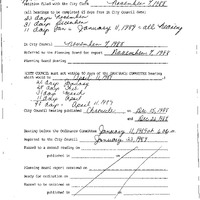 Petition filed with the City Clerk November 7, 1988
(all hearings to be completed 65 days from City Council date)
23 days November
31 days December
11 days Jan - January 11, 1989 - ALL Hearing
In City Council November 7, 1988
Referred to the Planning Board for report November 7, 1988
Planning Board hearing
CITY COUNCIL must act within 90 days of the ORDINANCE COMMITTEE hearing
which would be April 11, 1989
28 days Feb
31 days March
April
April 11, 1989
City Council hearing published Chronicle - Dec 15, 1988
and Dec 22, 1988
Hearing before the Ordinance Committee January 11, 1989 at
January 23, 1989
Passed to a second reading
published on
Planning Board report received on
Ready for ordination on
Passed to be ordained on
published on